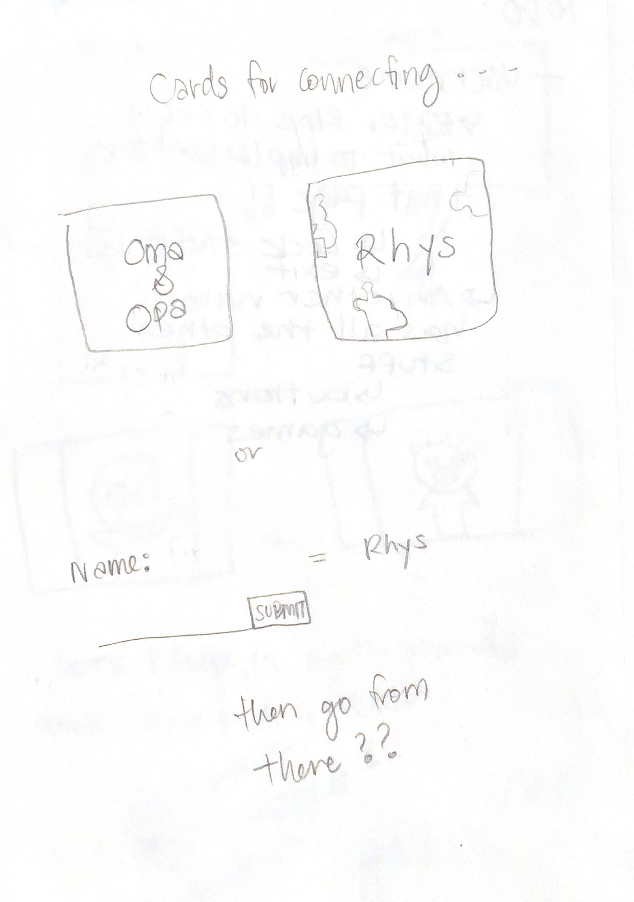 Cards for connecting . . . -
Oma
&
Opa
Rhys
or
Name:
= Rhys
SUBMIT
then go from
there ??